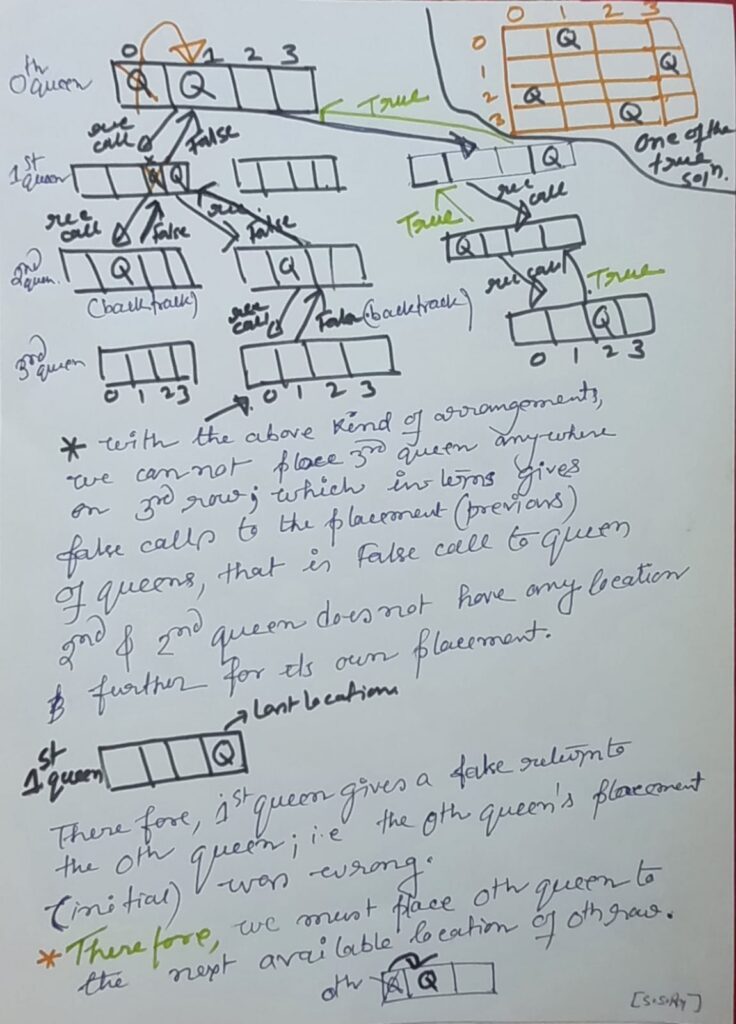 0 1 2 3
0th queen Q Q
True
rec call False
0 1 2 3
0 Q
1 Q
2 Q
3 Q
One of the
true
soln.
1st queen Q Q
Q
rec call False rec False
True rec call
2nd queen. Q Q
Q
(backtrack)
rec call False (backtrack)
rec call True
3rd queen
Q
0 1 2 3
0 1 2 3
0 1 2 3
* with the above kind of arrangements,
we can not place 3rd queen anywhere
on 3rd row; which in terms gives
false calls to the placement (previous)
of queens, that is False call to queen
2nd & 2nd queen does not have any location
further for its own placement.
Last location
1st queen Q
There fore, 1st queen gives a false return to
the 0th queen; i.e the 0th queen's placement
(initial) was wrong.
* Therefore, we must place 0th queen to
the next available location of 0th row.
0th Q Q
[S.S.Ry]